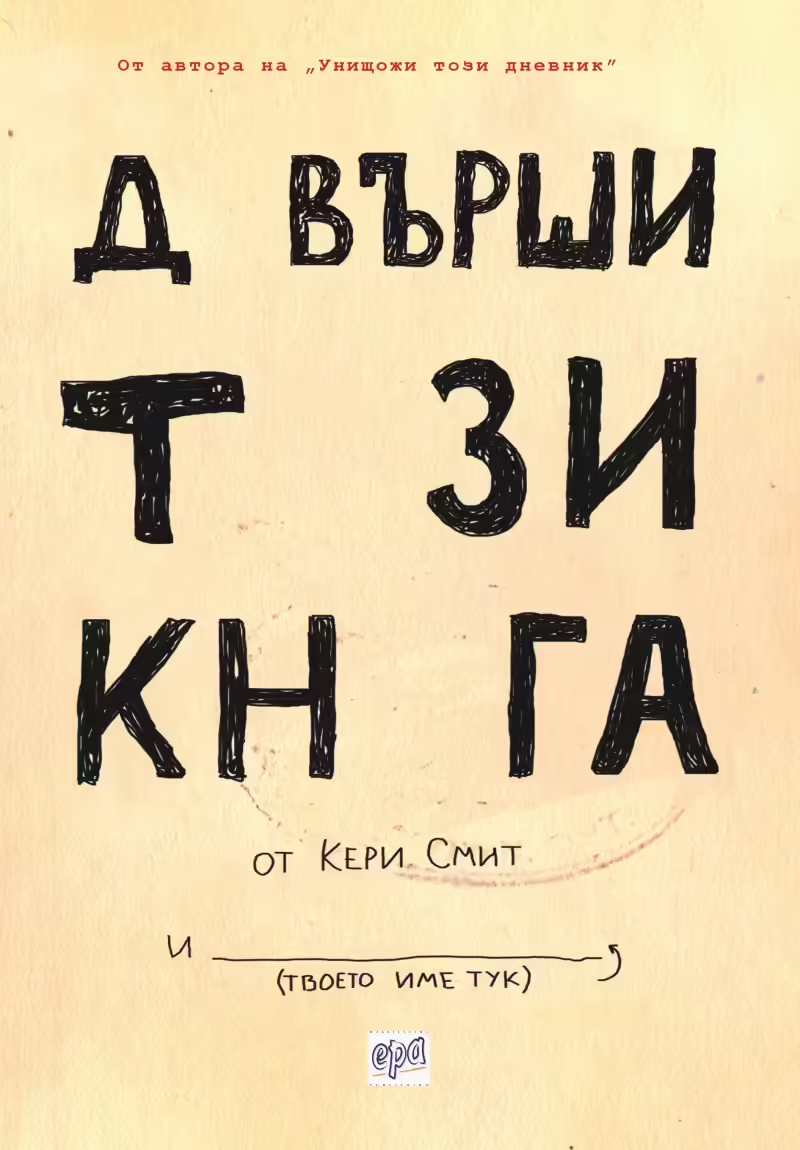 От автора на „Унищожи този дневник”
Д ВЪРШИ
Т ЗИ
КН ГА
от Кери Смит
и
(ТВОЕТО ИМЕ ТУК)
ера